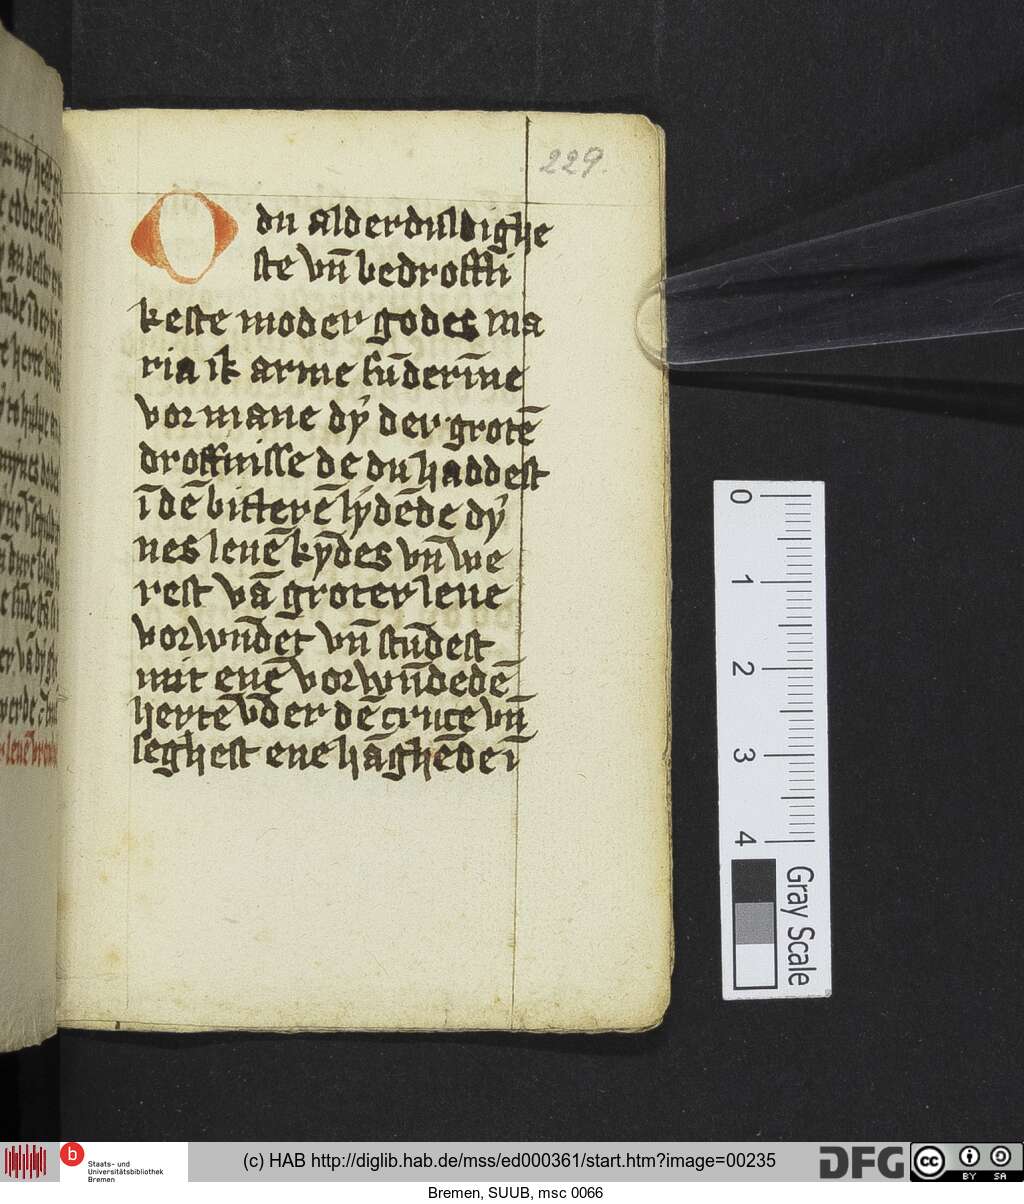 229.
O du alderduldighe
ste vn̄ bedroffli
keste moder godes ma
ria ik arme sūderīne
vor mane dÿ der grotē
droffnisse de du haddest
ī dē bitterē lÿdēde dÿ
nes leuē kȳdes vn̄ we
rest vā groter leue
vorwūdet vn̄ stūdest
mit enē vorwūdedē
herte vder dē cruce vn̄
seghest ene hāghēde ī
0
1
2
3
4
Gray Scale
b Staats- und
Universitätsbibliothek
Bremen
(c) HAB http://diglib.hab.de/mss/ed000361/start.htm?image=00235
DFG
cc BY SA
Bremen, SUUB, msc 0066